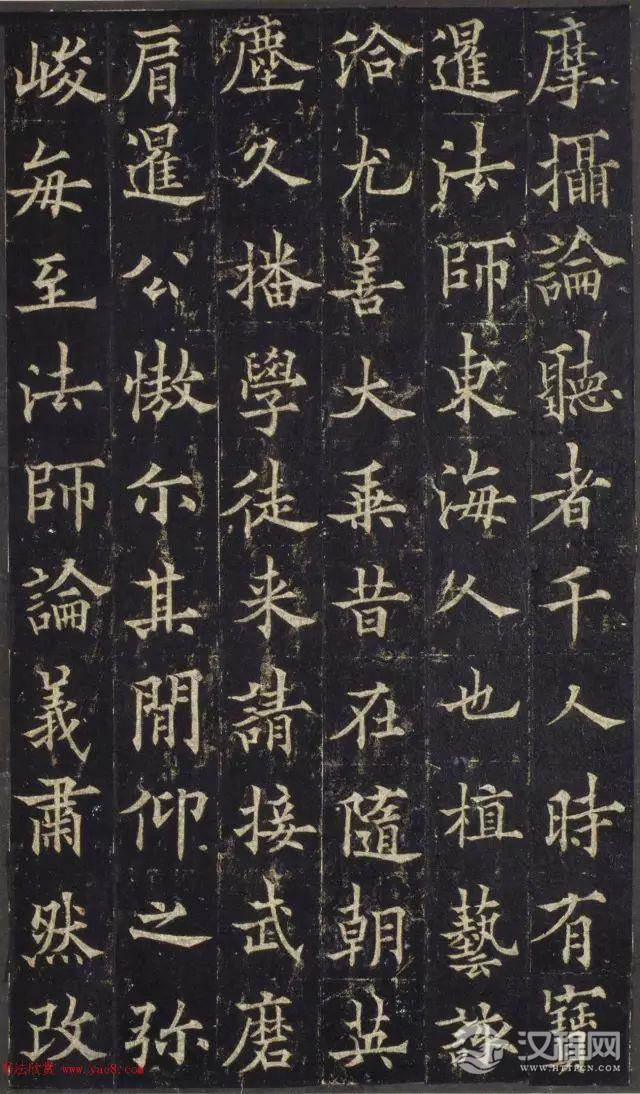 摩攝論聽者千人時有寶
暹法師東海人也植藝該
洽尤善大乗昔在隨朝英
塵久播學徒来請接武磨
肩暹公傲尒其間仰之弥
峻每至法師論義肅然改
汉程网
WWW.HTTPCN.COM
书法欣赏 www.yac8.com